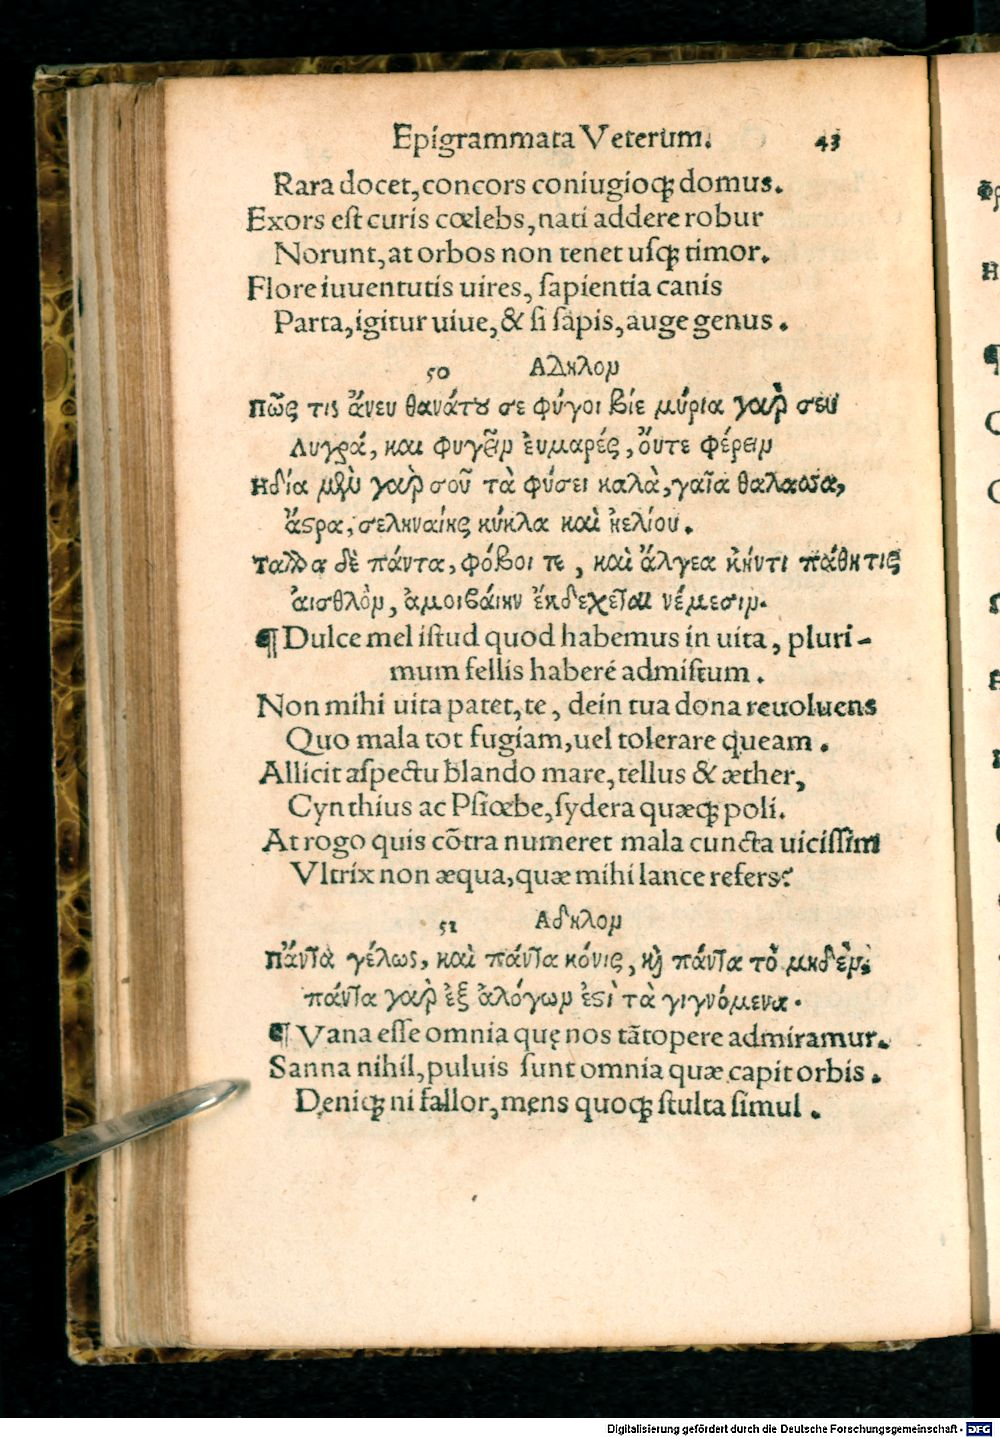 Epigrammata Veterum. 43
Rara docet, concors coniugioq; domus.
Exors est curis cœlebs, nati addere robur
Norunt, at orbos non tenet usq; timor.
Flore iuuentutis uires, sapientia canis
Parta, igitur uiue, & si sapis, auge genus.
50 ΑΔηλον
Πῶς τις ἄνευ θανάτου σε φύγοι βίε μύρια γαὶρ σευ
Λυγρά, και φυγεῖν ἐυμαρές, ὄυτε φέρειν
Ηδία μὲν γαὶρ σοῦ τὰ φύσει καλὰ, γαῖα θαλασσα,
ἄστρα, σεληναίης κύκλα καὶ ἠελίου.
Ταλλα δὲ πάντα, φόβοι τε, καὶ ἄλγεα κἤντι πάθη τις
ἀισθλὸν, ἀμοιβάιην ἐκδεχεῖται νέμεσιν.
¶ Dulce mel istud quod habemus in uita, pluri-
mum fellis haberé admistum.
Non mihi uita patet, te, dein tua dona reuoluens
Quo mala tot fugiam, uel tolerare queam.
Allicit aspectu blando mare, tellus & æther,
Cynthius ac Psiœbe, sydera quæq; poli.
At rogo quis cõtra numeret mala cuncta uicissim
Vltrix non æqua, quæ mihi lance refers?
51 Αδηλον
Πἄντα γέλως, καὶ πάντα κόνις, κὴ πάντα τὸ μηδὲν.
πάντα γαὶρ ἐξ ἀλόγων ἐστὶ τὰ γιγνόμενα.
¶ Vana esse omnia quę nos tãtopere admiramur.
Sanna nihil, puluis sunt omnia quæ capit orbis.
Deniq; ni fallor, mens quoq; stulta simul.
Digitalisierung gefördert durch die Deutsche Forschungsgemeinschaft - DFG